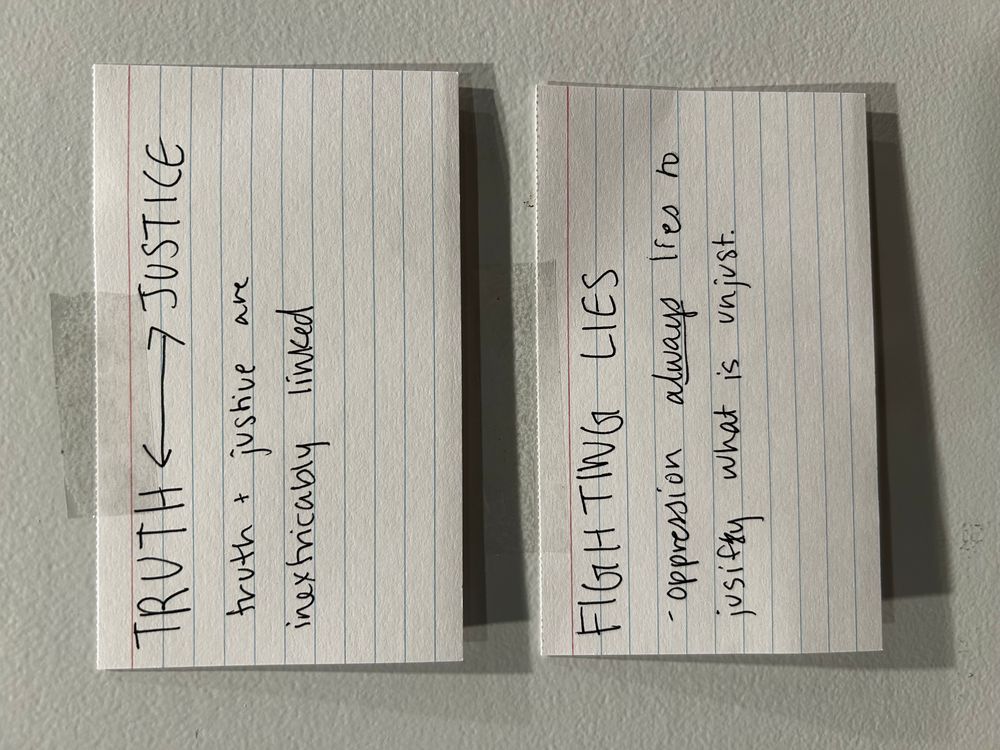 TRUTH ⟷ JUSTICE
truth + justive are
inextricably linked
FIGHTING LIES
- oppression always lies to
jusifty what is unjust.